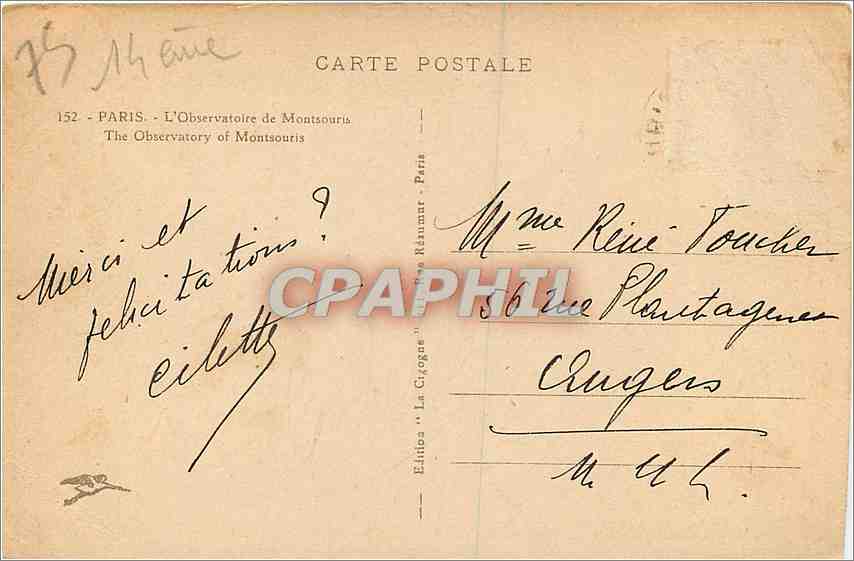 75 14 ème
CARTE POSTALE
152. - PARIS. - L'Observatoire de Montsouris
The Observatory of Montsouris
Merci et
felicitations ?
Cilette
Edition " La Cigogne " Rue Réaumur - Paris
CPAPHIL
Mme René Toucher
56 rue Plantagenet
Angers
M. et L.